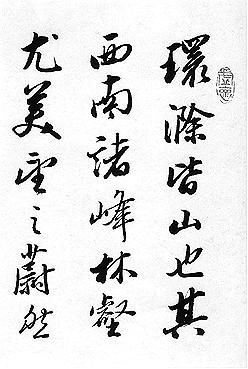 環滁皆山也其
西南諸峰林壑
尤美望之蔚然